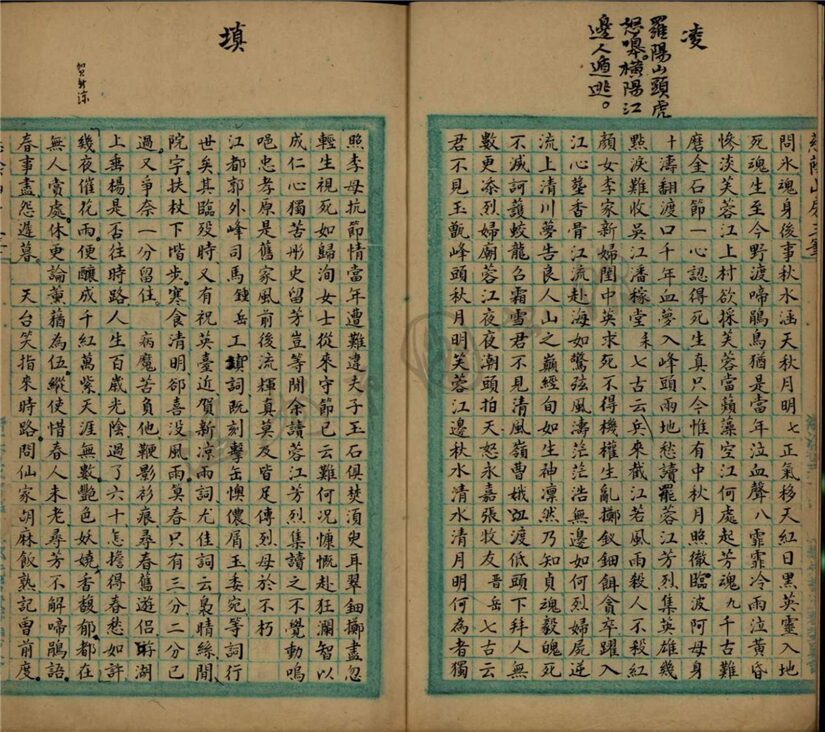 凌
羅陽山頭虎
怒嘷橫陽江
邊人遁逃。
問氷魂身後事秋水涵天秋月明七正氣移天紅日黑英靈入地
死魂生至今野渡啼鵑鳥猶是當年泣血聲八霏霏冷雨泣黃昏
慘淡芙蓉江上村欲採芙蓉當蘋藻空江何處起芳魂九千古難
磨金石節一心認得死生真只今惟有中秋月照徹臨波阿母身
十濤翻渡口千年血夢入峰頭兩地愁讀罷蓉江芳烈集英雄幾
點淚難收吳江潘稼堂耒七古云兵來截江若風雨殺人不殺紅
顏女李家新婦閨中英求死不得機權生亂擲釵鈿餌貪卒躍入
江心塟香骨江流赴海如驚弦風濤茫茫浩無邊如何烈婦屍逆
流上清川夢告良人山之巔經旬如生神凜然乃知貞魂毅魄死
不滅訶護蛟龍召霜雪君不見清風嶺曹娥江渡低頭下拜人無
數更添烈婦廟蓉江夜夜潮頭拍天怒永嘉張牧友晋岳七古云
君不見玉甑峰頭秋月明芙蓉江邊秋水清水清月明何為者獨
填
賀新涼
照李母抗節情當年遭難違夫子玉石俱焚湏臾耳翠鈿擲盡忽
輕生視死如歸洵女士從來守節已云難何況慷慨赴狂瀾智以
成仁心獨苦彤史留芳豈等閒余讀蓉江芳烈集讀之不覺動嗚
唈忠孝原是舊家風前後流輝真莫及皆足傳烈母於不朽
江都郭外峰司馬鍾岳工填詞既刻擊缶懊儂屑玉委宛等詞行
世矣其臨歿時又有祝英臺近賀新凉兩詞尤佳詞云裊晴絲閒
院宇扶杖下階步寒食清明郤喜没風雨莫春只有三分二分已
過又爭奈一分留住 病魔苦負他鞭影衫痕尋春舊遊侶蒋湖
上垂楊是否往時路人生百歲光陰過了六十怎擔得春愁如許
幾夜催花雨便釀成千紅萬紫天涯無數艷色妖嬈香馥郁都在
無人賞處休更論薰蕕為伍縱使惜春人未老尋芳不解啼鵑語
春事盡怨遲暮 天台笑指來時路問仙家胡麻飯熟記曾前度